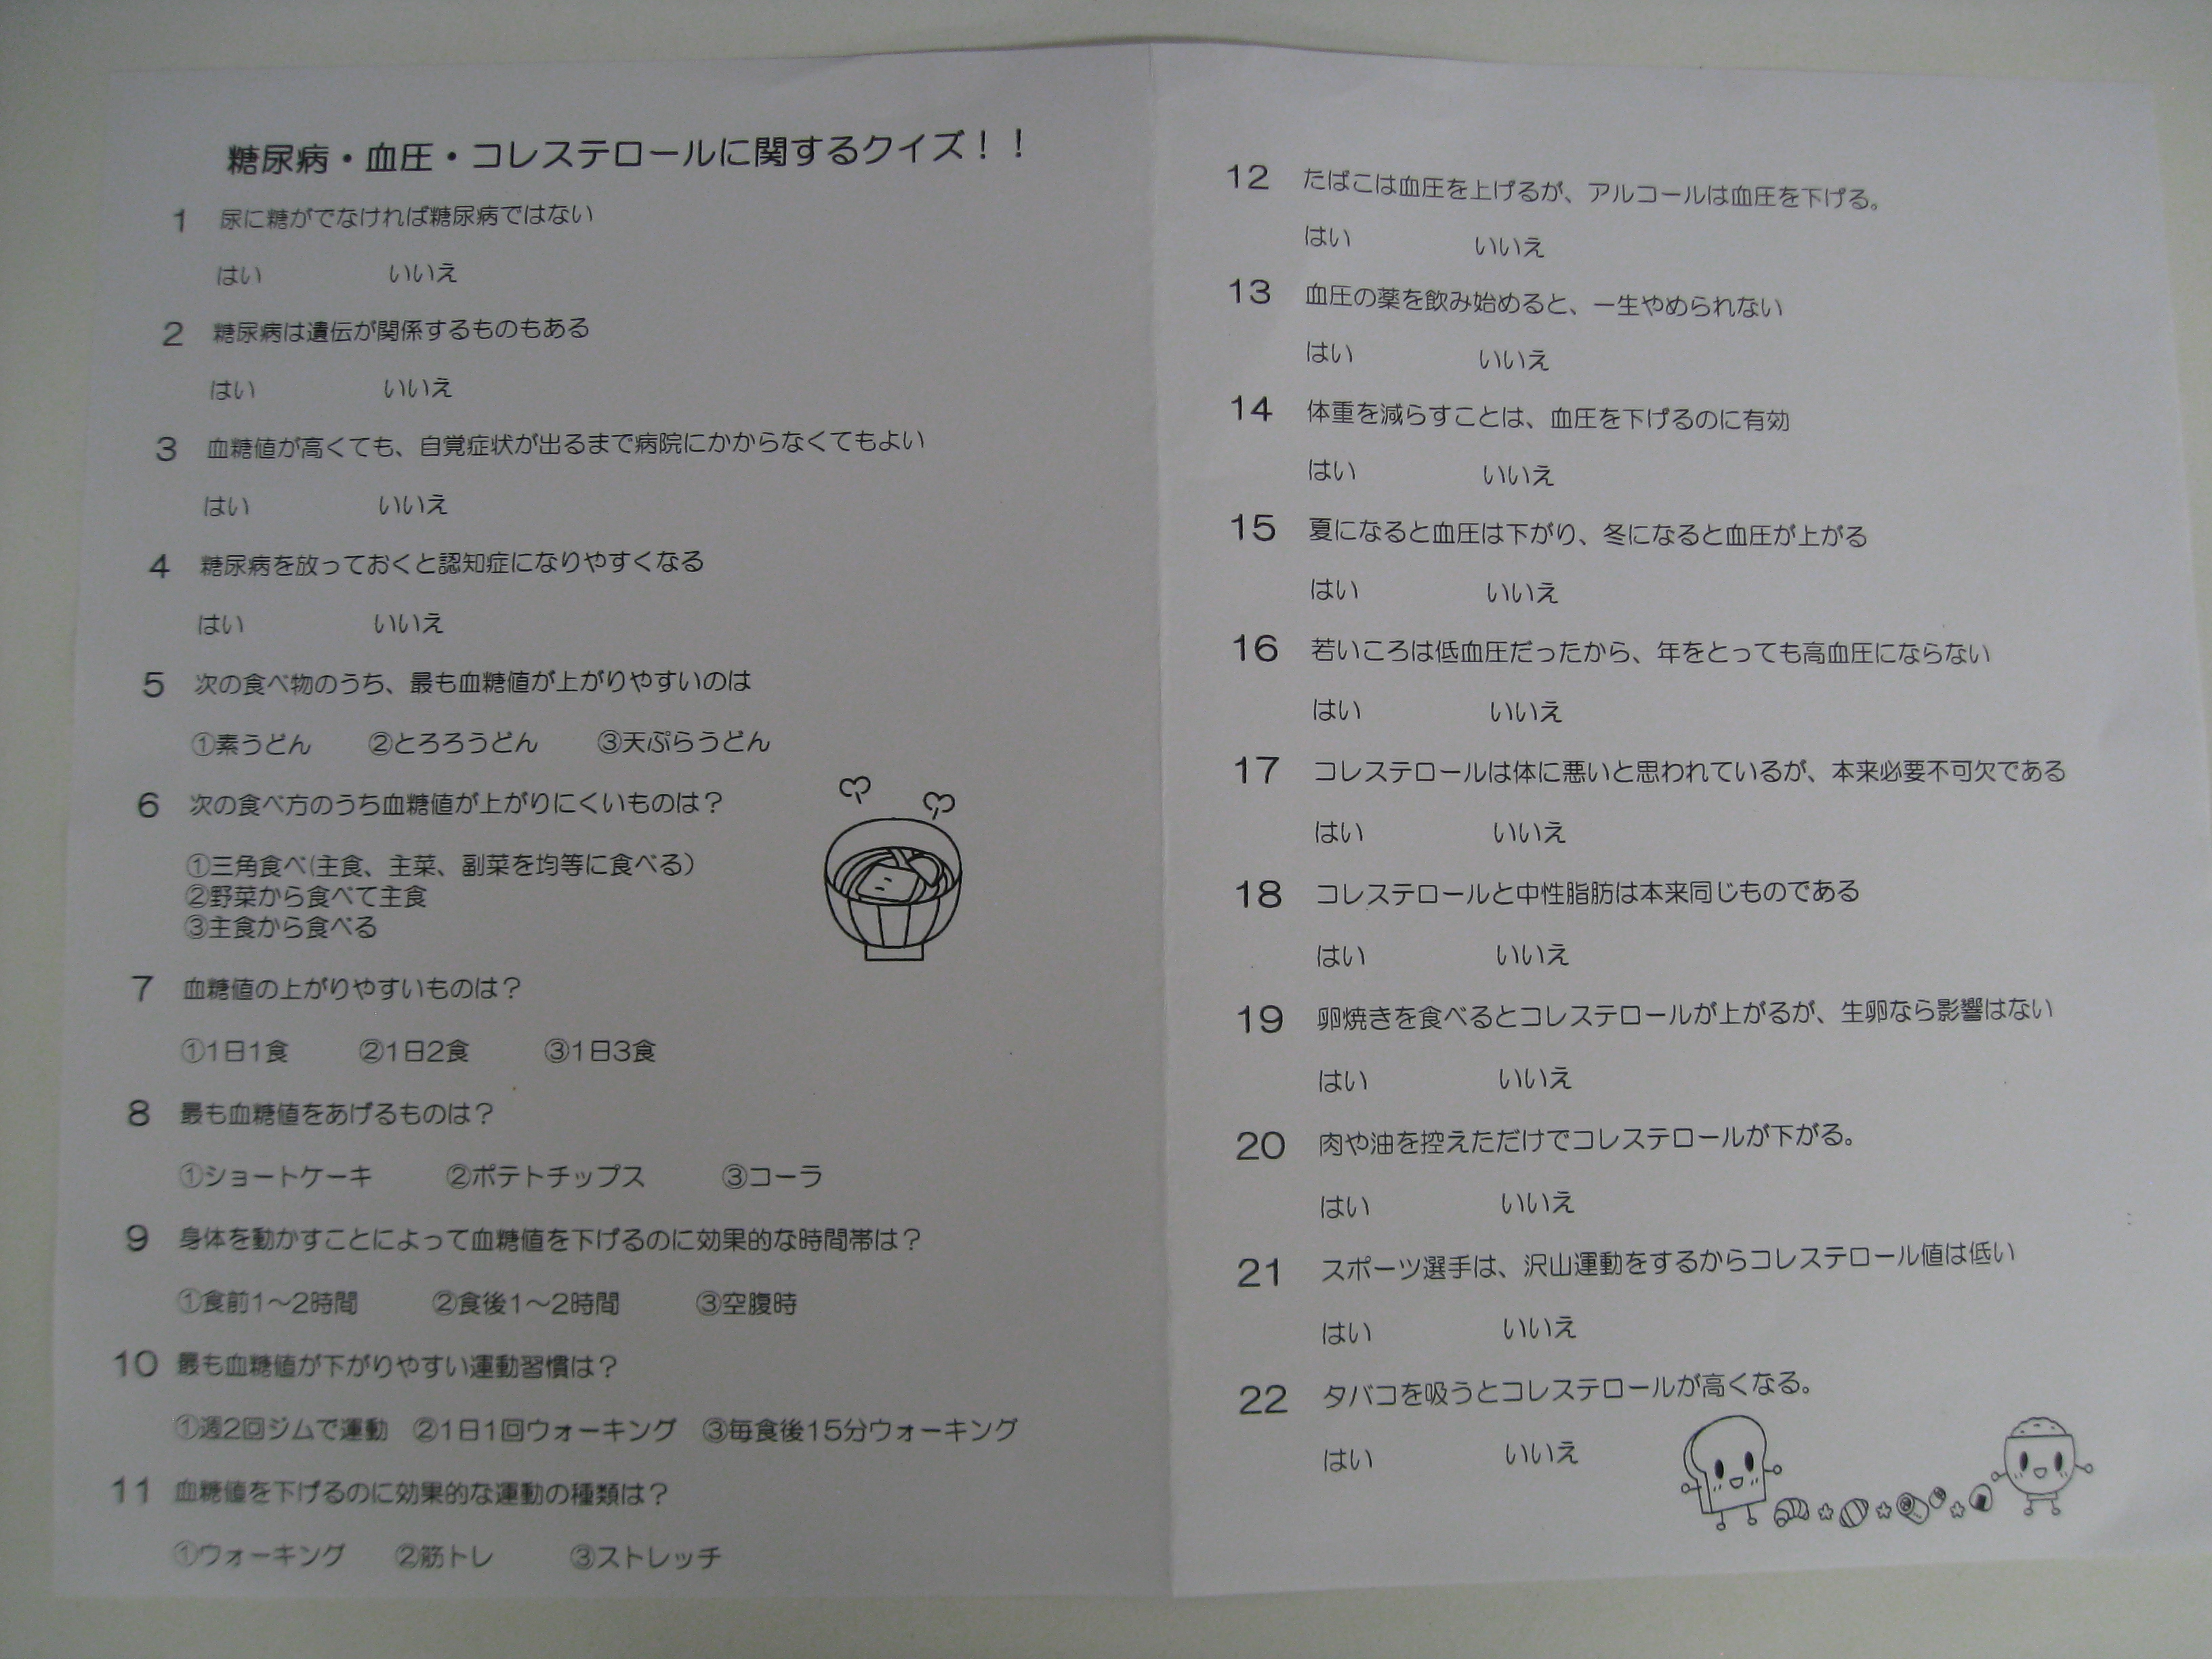 糖尿病・血圧・コレステロールに関するクイズ！！
1 尿に糖がでなければ糖尿病ではない
はい いいえ
2 糖尿病は遺伝が関係するものもある
はい いいえ
3 血糖値が高くても、自覚症状が出るまで病院にかからなくてもよい
はい いいえ
4 糖尿病を放っておくと認知症になりやすくなる
はい いいえ
5 次の食べ物のうち、最も血糖値が上がりやすいのは
①素うどん ②とろろうどん ③天ぷらうどん
6 次の食べ方のうち血糖値が上がりにくいものは？
①三角食べ(主食、主菜、副菜を均等に食べる)
②野菜から食べて主食
③主食から食べる
7 血糖値の上がりやすいものは？
①1日1食 ②1日2食 ③1日3食
8 最も血糖値をあげるものは？
①ショートケーキ ②ポテトチップス ③コーラ
9 身体を動かすことによって血糖値を下げるのに効果的な時間帯は？
①食前1～2時間 ②食後1～2時間 ③空腹時
10 最も血糖値が下がりやすい運動習慣は？
①週2回ジムで運動 ②1日1回ウォーキング ③毎食後15分ウォーキング
11 血糖値を下げるのに効果的な運動の種類は？
①ウォーキング ②筋トレ ③ストレッチ
12 たばこは血圧を上げるが、アルコールは血圧を下げる。
はい いいえ
13 血圧の薬を飲み始めると、一生やめられない
はい いいえ
14 体重を減らすことは、血圧を下げるのに有効
はい いいえ
15 夏になると血圧は下がり、冬になると血圧が上がる
はい いいえ
16 若いころは低血圧だったから、年をとっても高血圧にならない
はい いいえ
17 コレステロールは体に悪いと思われているが、本来必要不可欠である
はい いいえ
18 コレステロールと中性脂肪は本来同じものである
はい いいえ
19 卵焼きを食べるとコレステロールが上がるが、生卵なら影響はない
はい いいえ
20 肉や油を控えただけでコレステロールが下がる。
はい いいえ
21 スポーツ選手は、沢山運動をするからコレステロール値は低い
はい いいえ
22 タバコを吸うとコレステロールが高くなる。
はい いいえ